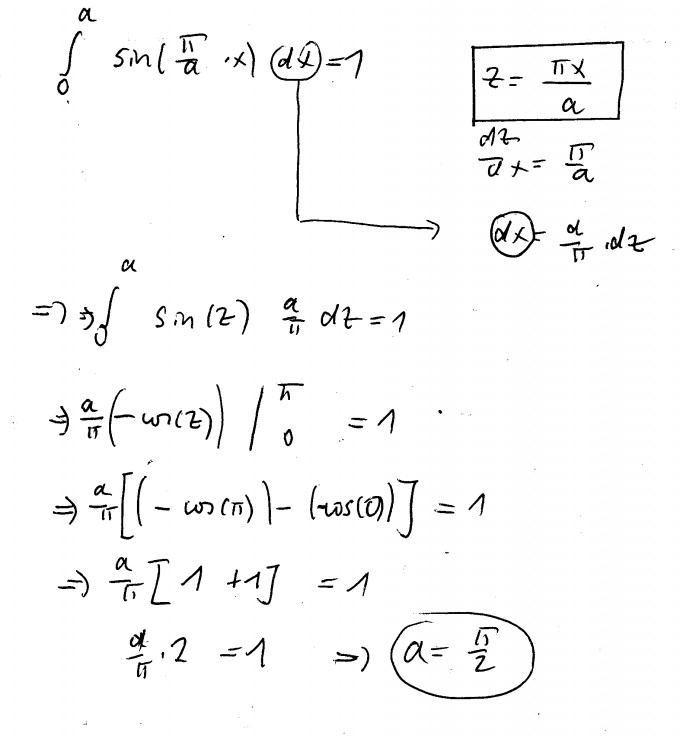 ∫₀ᵃ sin(π/a · x) dx = 1
z = πx/a
dz/dx = π/a
dx = a/π · dz
=> => ∫₀ᵃ sin(z) a/π dz = 1
=> a/π (-cos(z)) |₀^π = 1
=> a/π [(-cos(π)) - (-cos(0))] = 1
=> a/π [1 + 1] = 1
a/π · 2 = 1 => a = π/2